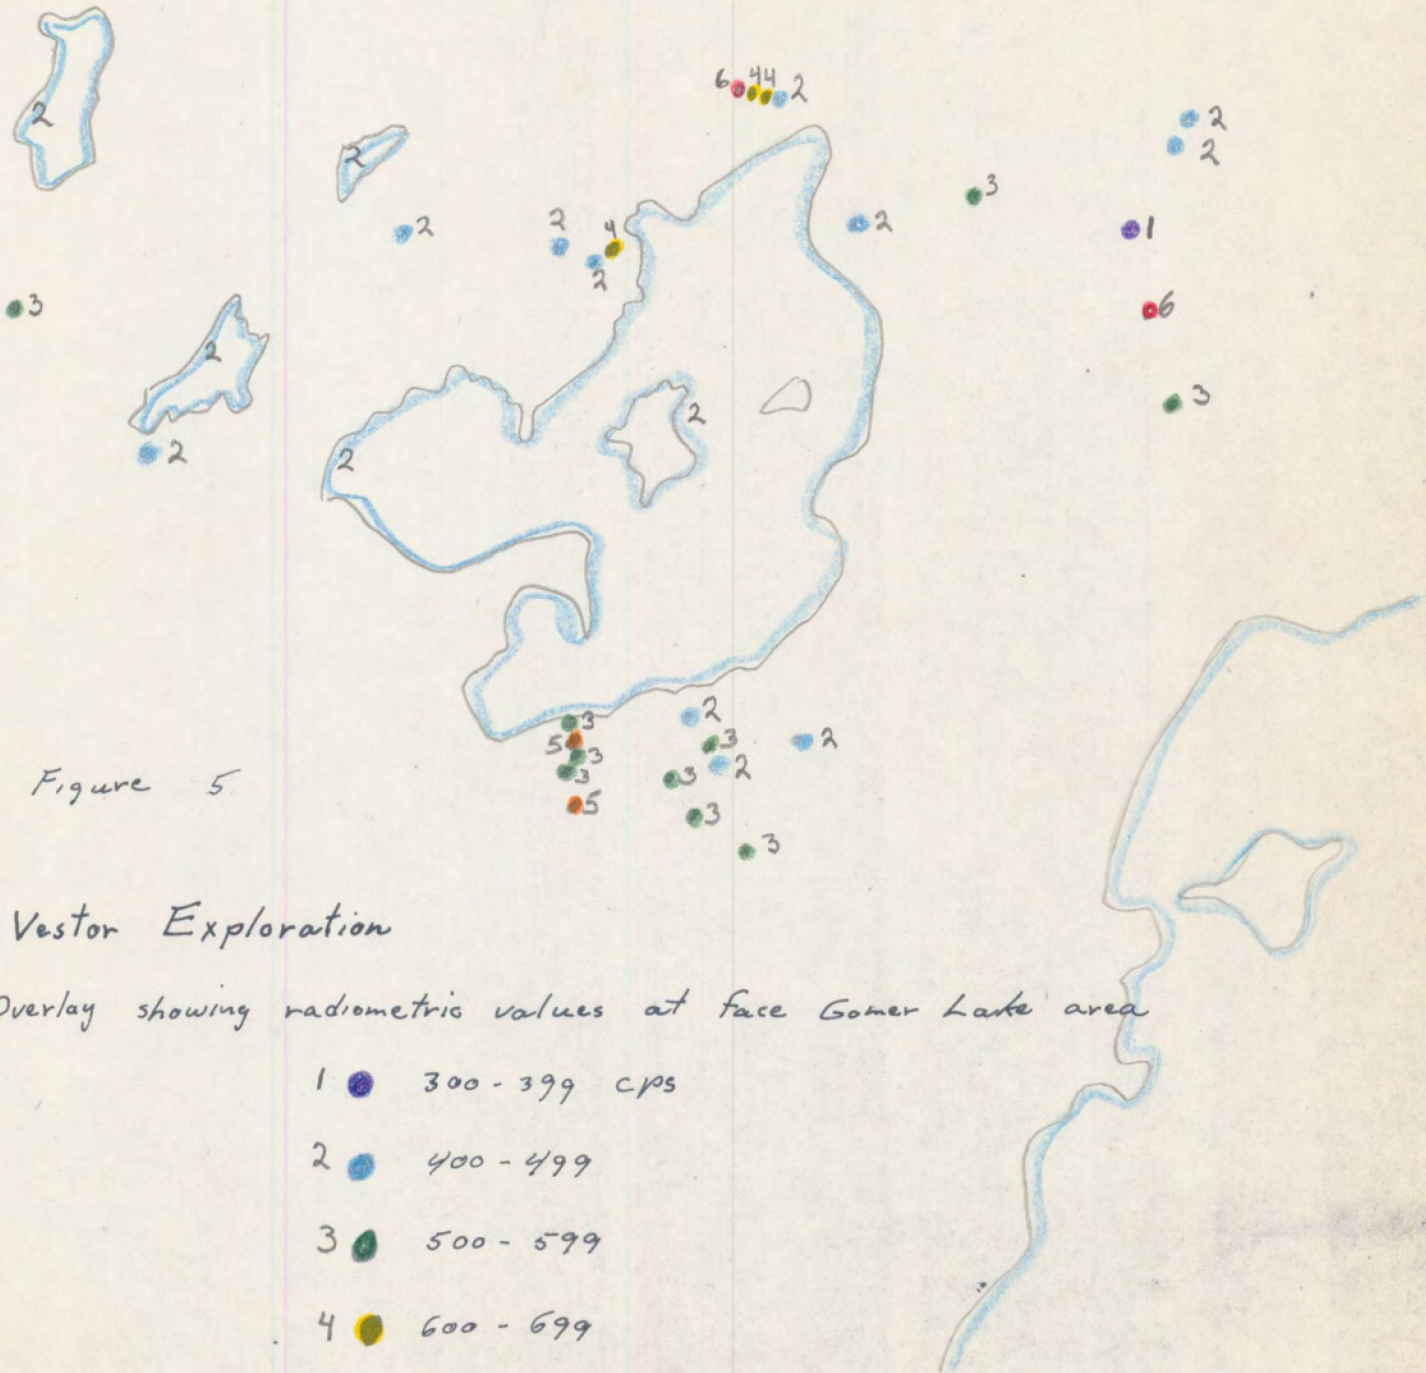 6 4 4 2
2
2
2
2
3
2
2
2
4
2
2
1
3
6
2
2
3
2
2
2
3
2
3
5
3
2
3
2
3
5
3
3
Figure 5
Vestor Exploration
Overlay showing radiometric values at face Gomer Lake area
1 300-399 cps
2 400-499
3 500-599
4 600-699